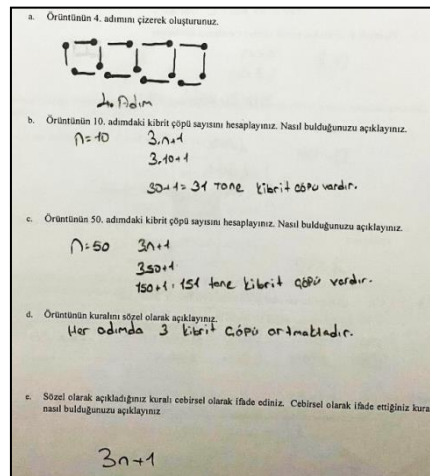 a. Örüntünün 4. adımını çizerek oluşturunuz.
4. Adım
b. Örüntünün 10. adımdaki kibrit çöpü sayısını hesaplayınız. Nasıl bulduğunuzu açıklayınız.
n=10 3.n+1
3.10+1
30+1=31 Tane kibrit çöpü vardır.
c. Örüntünün 50. adımdaki kibrit çöpü sayısını hesaplayınız. Nasıl bulduğunuzu açıklayınız.
n=50 3n+1
350+1
150+1=151 tane kibrit çöpü vardır.
d. Örüntünün kuralını sözel olarak açıklayınız.
Her adımda 3 kibrit çöpü artmaktadır.
e. Sözel olarak açıkladığınız kuralı cebirsel olarak ifade ediniz. Cebirsel olarak ifade ettiğiniz kura
nasıl bulduğunuzu açıklayınız
3n+1